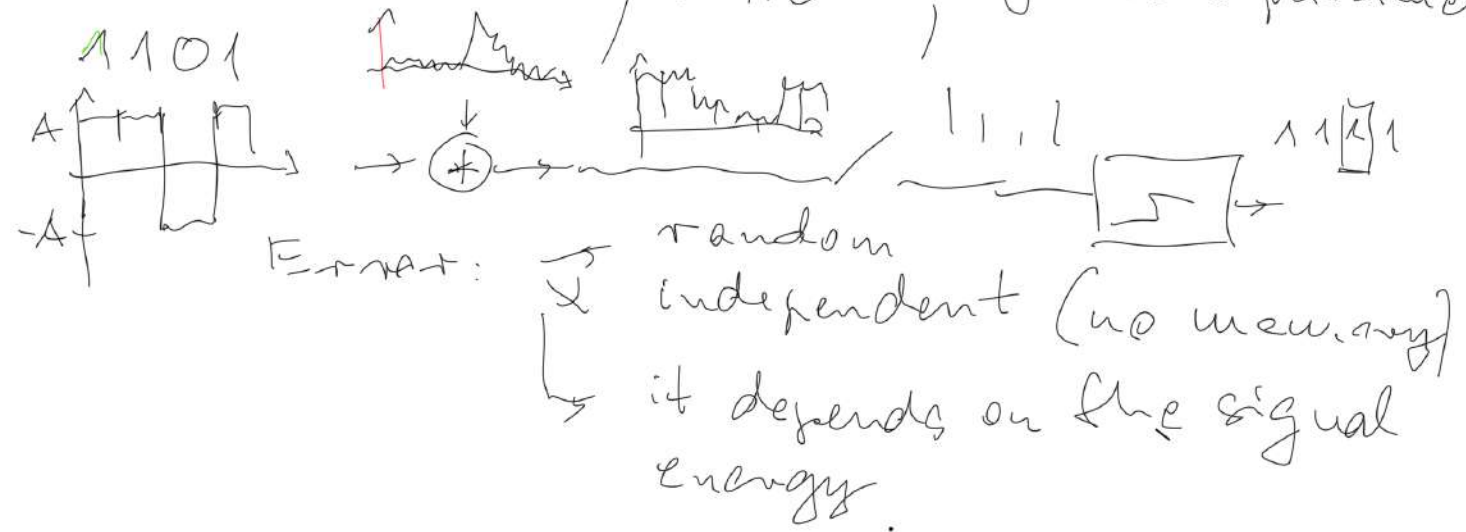 1 1 0 1
A
-A
1 1 1 1
Error:
random
independent (no memory)
it depends on the signal
energy